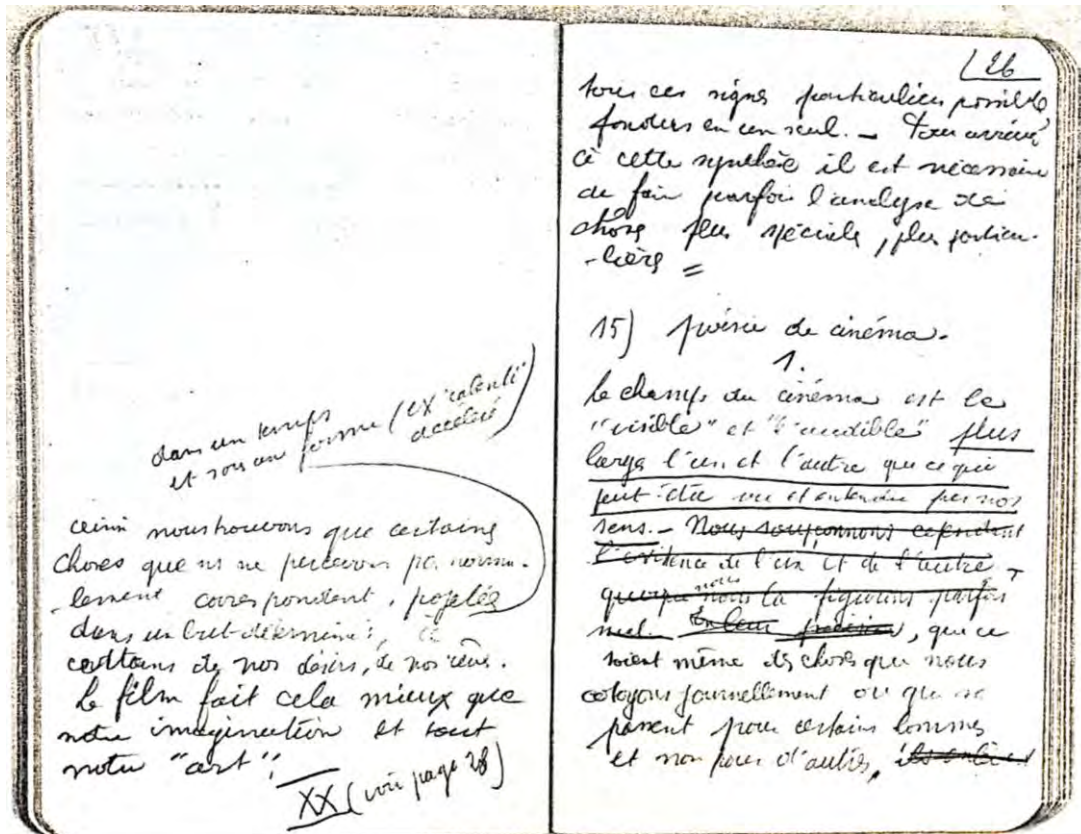 dans un temps
et sous un forme (ex ralenti
accéléré)
ainsi nous trouvons que certaines
choses que ns ne percevons pas norma-
-lement correspondent, projetées
dans un but déterminé, à
certains de nos désirs, de nos rêves.
Le film fait cela mieux que
notre imagination et tout
notre "art".
XX (voir page 28)
26
tous ces signes particuliers possible
fondus en un seul. — Pour arriver
à cette synthèse il est nécessaire
de faire parfois l'analyse de
choses plus spéciales, plus particu-
-lières =
15) poésie de cinéma.
1.
le champs du cinéma est le
"visible" et "l'audible" plus
large l'un et l'autre que ce qui
peut être vu et entendu par nos
sens. — Nous soupçonnons cependant
l'existence de l'un et de l'autre,
quoique nous nous la figurions parfois
mal. En leur, que ce
soient même des choses que nous
cotoyons journellement ou qui se
passent pour certains hommes
et non pour d'autres,